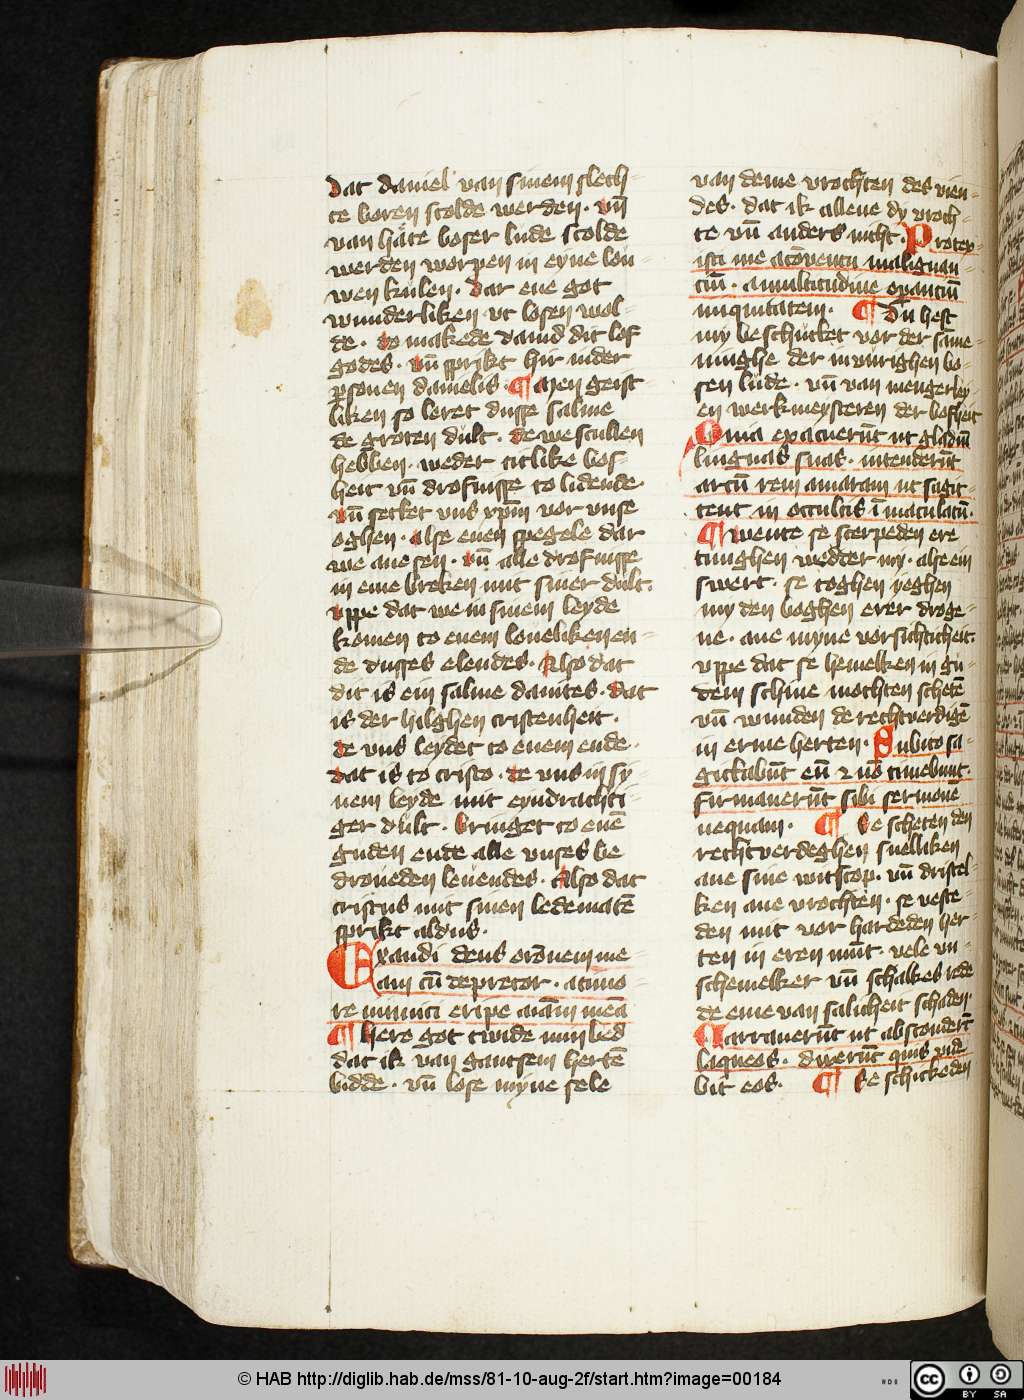 dat daniel van sinem slech-
te boren scolde werden. vn̄
van hate boser lude scolde
werden worpen in eyne lou-
wen kulen. dar ene got
wunderliken vt losen wol-
de. do makede dauid dit lof
godes. vn̄ sprikt hir in der
ꝑsonen danielis. ¶ Men geist-
liken so leret dusse salme
de groten dult. de we scullen
hebben. weder titlike bos-
heit vn̄ drofnisse to lidende.
vn̄ settet vns xp̄m vor vnse
oghen. alse enen spegele dar
we ane sen. vn̄ alle drofnisse
in ene breken mit siner dult.
vppe dat we in sinem leyde
komen to enem loueliken en-
de dusses elendes. Also dat
dit is ein salme dauites. dat
is der hilghen cristenheit.
de vns leydet to enem ende.
dat is to cristo. de vns in sy-
nem leyde mit eyndrachti-
ger dult. bringet to enē
guden ende alle vnses be
droueden leuendes. Also dat
cristus mit sinen ledematē
sprikt aldus.
Exaudi deus orōnem me-
am cū deprecor. a timo-
re inimici eripe aīam meā
¶ Here got twide min bed
dat ik van gantsem hertē
bidde. vn̄ lose myne sele
van deme vrochten des vien-
des. dat ik allene dy vroch-
te vn̄ anders nicht. Protex-
isti me a cōuentu malignan-
ciū. a multitudine oꝑanciū
iniquitatem. ¶ Du hest
my beschuttet vor der same-
ninghe der inwrighen bo-
sen lude. vn̄ van mengerley
en werkmeysteren der bosheit
Quia exacuerūt ut gladiū
linguas suas. intenderūt
arcū rem amaram ut sagit-
tent in occultis īmaculatū.
¶ Wente se scerpeden ere
tunghen wedder my. alse ein
swert. se toghen yeghen
my den boghen erer droge-
ne. ane myne vorsichticheit.
vppe dat se hemelken in gu-
dem schine mochten schetē
vn̄ wunden de rechtverdigē
in erme herten. Subito sa-
gittabūt eū ⁊ nō timebunt.
firmauerūt sibi sermonē
nequam. ¶ Se scheten den
rechtverdeghen snelliken
ane sine witscop. vn̄ dristel-
ken ane vrochten. se veste-
den mit vor hardeden her-
ten in eren mūt. vele vn-
schemelker vn̄ schalkes rede
de ene van salicheit schaden
Narrauerūt ut absconderēt
laqueos. dixerūt quis vide-
bit eos. ¶ Se schickeden
© HAB http://diglib.hab.de/mss/81-10-aug-2f/start.htm?image=00184
HAB
cc BY SA